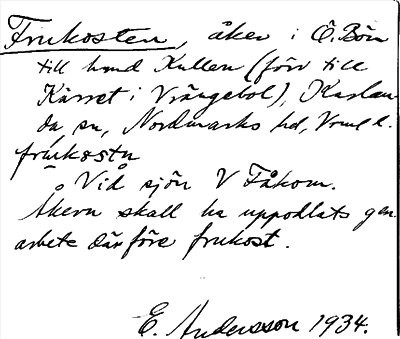 Frukosten, åker i Ö. Bön
till hmd Kullen (förr till
Kärret i Vrängebol), Karlan-
da sn, Nordmarks hd, Vrml l.
frukostn
Vid sjön V Fåkom.
Åkern skall ha uppodlats gm
arbete därföre frukost.
E. Andersson 1934.